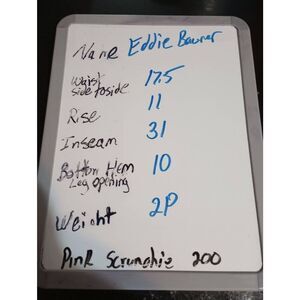 Name Eddie Bauer
Waist 17.5
side to side
Rise 11
Inseam 31
Bottom Hem 10
Leg opening
Weight 2P
Pink Scrunchie 200